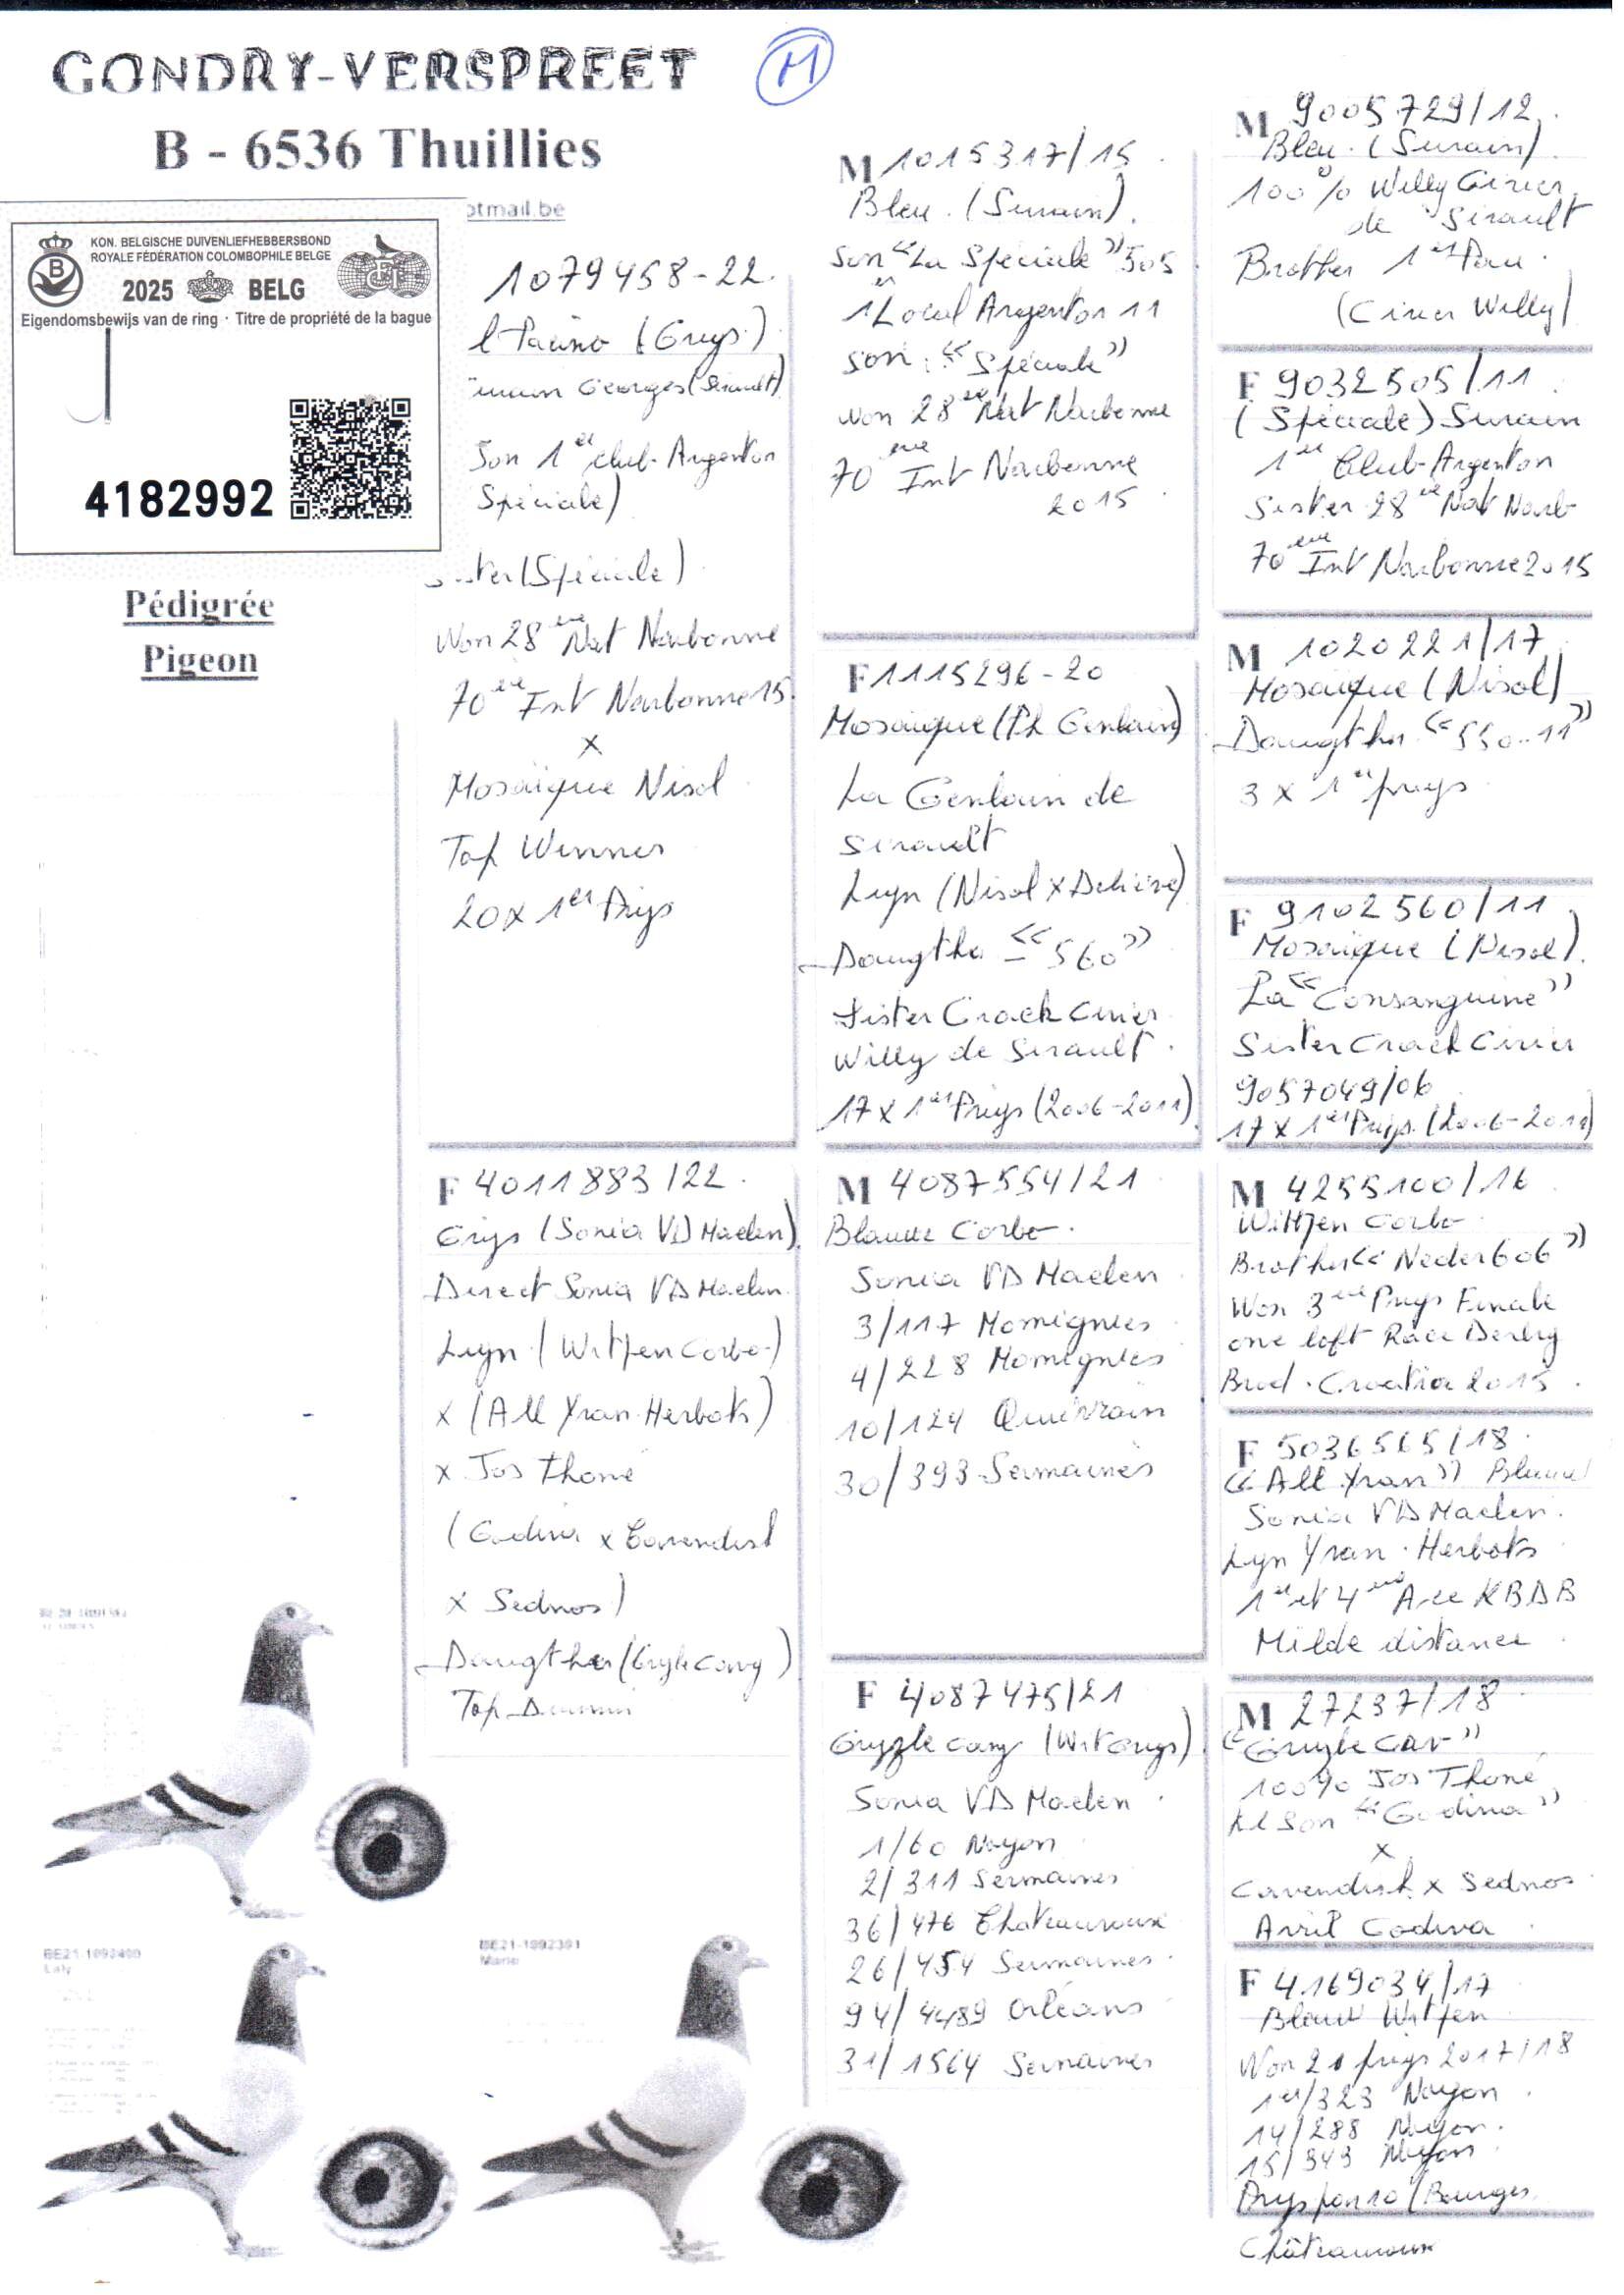 GONDRY-VERSPREET
M
B - 6536 Thuillies
otmail.be
KON. BELGISCHE DUIVENLIEFHEBBERSBOND
ROYALE FÉDÉRATION COLOMBOPHILE BELGE
2025 BELG
Eigendomsbewijs van de ring · Titre de propriété de la bague
4182992
Pédigrée
Pigeon
1079458-22.
(Grys)
Georges (Sirault)
Son 1er club Argenton
Spéciale)
ster (Spéciale)
Won 28 ème Nat Narbonne
70 ème Int Narbonne 15.
x
Mosaïque Nisol
Top Winner
20x 1er Prijs
F 4011883/22.
Grijs (Sonia VD Maelen)
Direct Sonia VD Maelen
Lyn (Witpen Corbo)
x (All Yran Herbots)
x Jos Thoné
(Godiva x Cavendish
x Sednos)
Daugther (Grijle Cavy)
Top
M 1015317/15
Bleu. (Surain).
Son "La Spéciale" 505
1 Local Argenton 11
Son: "Spéciale"
won 28 ème Nat Narbonne
70 ème Int Narbonne
2015
F 1115296-20
Mosaique (Ph Genlain)
La Genlain de
Sirault
Lyn (Nisol x Delière)
Daugther "560"
Sister Crack Cirier
Willy de Sirault.
17 x 1er Prijs (2006-2011)
M 4087554/21
Blauw Corbo.
Sonia VD Maelen
3/117 Momignies
4/228 Momignies
10/124 Quiévrain
30/393 Sermaises
F 4087475/21
Gryzzle cavy (Wit Grijs)
Sonia VD Maelen
1/60 Noyon
2/311 Sermaises
36/476 Chateauroux
26/454 Sermaises
94/4489 Orléans
31/1564 Sermaises
M 9005729/12.
Bleu. (Surain)
100% Willy Cirier
de Sirault
Brother 1er Pau.
(Cirier Willy)
F 9032505/11
(Spéciale) Surain
1er Club Argenton
Sister 28 ème Nat Narb
70 ème Int Narbonne 2015
M 1020221/17
Mosaïque (Nisol)
Daugther "550-11"
3 x 1er prijs
F 9102560/11
Mosaïque (Nisol).
La "Consanguine"
Sister Crack Cirier
9057049/06
17 x 1er Prijs. (2006-2011)
M 4255100/16
Witpen Corbo
Brother "Neder 606"
Won 3ème Prijs Finale
one loft Race Derby
Brod. Croatia 2015.
F 5036565/18
"All Yran" Blauw
Sonia VD Maelen.
Lyn Yran. Herbots
1er et 4ème Ace KBDB
Milde distance
M 27237/18
"Gryzle Cav"
100% Jos Thoné
Kl Son "Godiva"
x
Cavendish x Sednos
Avril Godiva
F 4169034/17
Blauw Witpen
Won 21 prijs 2017/18
1er/323 Noyon
14/288 Noyon.
15/343 Noyon
Prijs (Bourges
Châteauroux
BE21-1092400
Laly
BE21-1092391
Mario